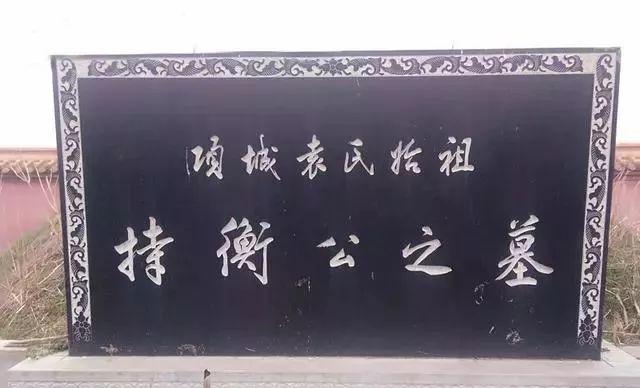 项城袁氏始祖
持衡公之墓